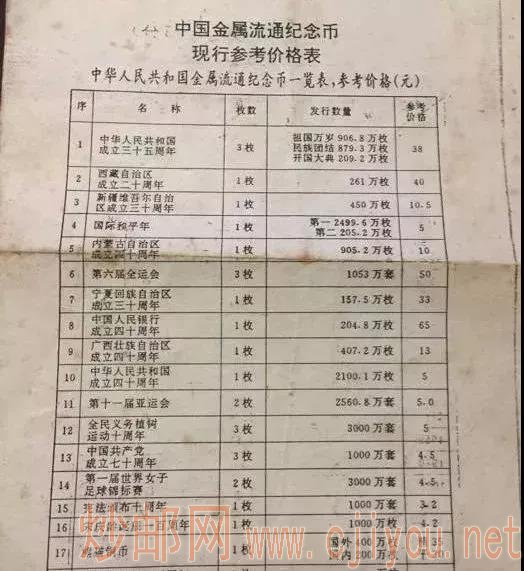 中国金属流通纪念币
现行参考价格表
中华人民共和国金属流通纪念币一览表，参考价格(元)
序 名 称 枚数 发行数量 参考价格
1 中华人民共和国成立三十五周年 3枚 祖国万岁 906.8 万枚 民族团结 879.3 万枚 开国大典 209.2 万枚 38
2 西藏自治区成立二十周年 1枚 261万枚 40
3 新疆维吾尔自治区成立三十周年 1枚 450 万枚 10.5
4 国际和平年 1枚 第一 2499.6 万枚 第二 205.2 万枚 5
5 内蒙古自治区成立四十周年 1枚 905.2 万枚 10
6 第六届全运会 3枚 1053 万套 50
7 宁夏回族自治区成立三十周年 1枚 157.5 万枚 33
8 中国人民银行成立四十周年 1枚 204.8 万枚 65
9 广西壮族自治区成立四十周年 1枚 407.2 万枚 13
10 中华人民共和国成立四十周年 1枚 2100.1 万枚 5
11 第十一届亚运会 2枚 2560.8 万套 5.0
12 全民义务植树运动十周年 3枚 3000 万套 5
13 中国共产党成立七十周年 3枚 1000 万套 4.5
14 第一届世界女子足球锦标赛 2枚 3000 万套 4.5
15 宪法颁布十周年 1枚 1000万套 3.2
16 宋庆龄诞辰一百周年 1枚 1000万枚 4.2
17 1枚 国外 400 万枚 国内 200 万枚 35 30
www.cjiyou.net